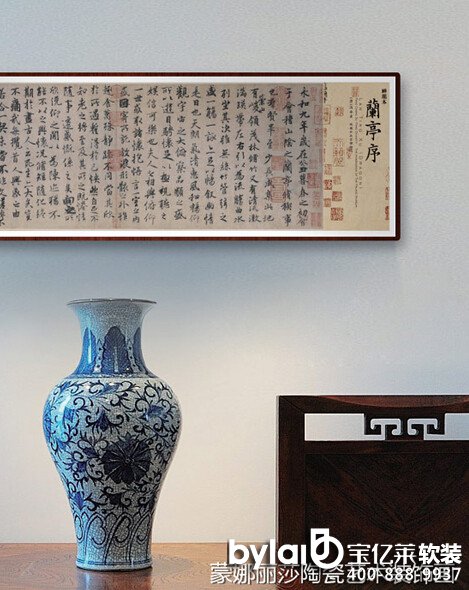 神龍本
蘭亭序
永和九年歲在癸丑暮春之初會
于會稽山陰之蘭亭脩稧事
也羣賢畢至少長咸集此地
有崇山峻領茂林脩竹又有清流激
湍暎帶左右引以為流觴曲水
列坐其次雖無絲竹管弦之
盛一觴一詠亦足以暢叙幽情
是日也天朗氣清惠風和暢仰
觀宇宙之大俯察品類之盛
所以遊目騁懷足以極視聽之
娛信可樂也夫人之相與俯仰
一世或取諸懷抱悟言一室之內
或因寄所託放浪形骸之外雖
趣舍萬殊靜躁不同當其欣
於所遇蹔得於己怏然自足不
知老之將至及其所之既惓情
隨事遷感慨係之矣向之所
欣俛仰之閒以為陳迹猶不
能不以之興懷況脩短隨化終
期於盡古人云死生亦大矣豈
不痛哉每攬昔人興感之由
若合一契未嘗不臨文嗟悼不
bylaib 宝亿莱软装
400-888-9937
蒙娜丽莎陶瓷